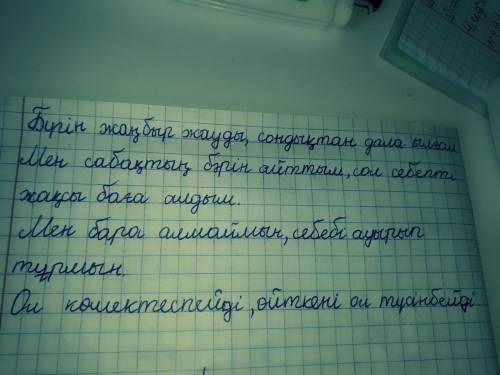 Бүгін жаңбыр жауды, сондықтан дала ылғал.
Мен сабақтың бәрін айттым, сол себепті
жақсы баға алдым.
Мен бара алмаймын, себебі ауырып
тұрмын.
Ол көмектеспейді, өйткені ол түсінбейді.